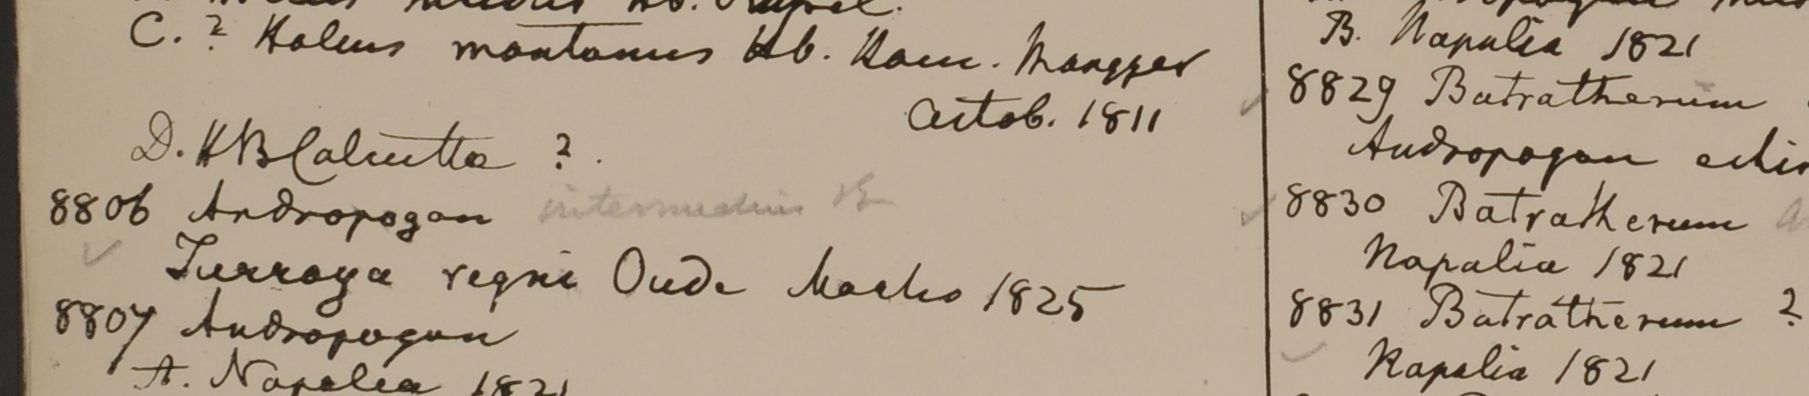 C. ? Holcus montanus Hb. Ham. Mongger
Octob. 1811
D. HB Calcutta ?
8806 Andropogon intermedius Br
Turraya regni Oude Martio 1825
8807 Andropogon
A. Napalia 1821
B. Napalia 1821
8829 Batratherum
Andropogon echin
8830 Batratherum
Napalia 1821
8831 Batratherum ?
Napalia 1821